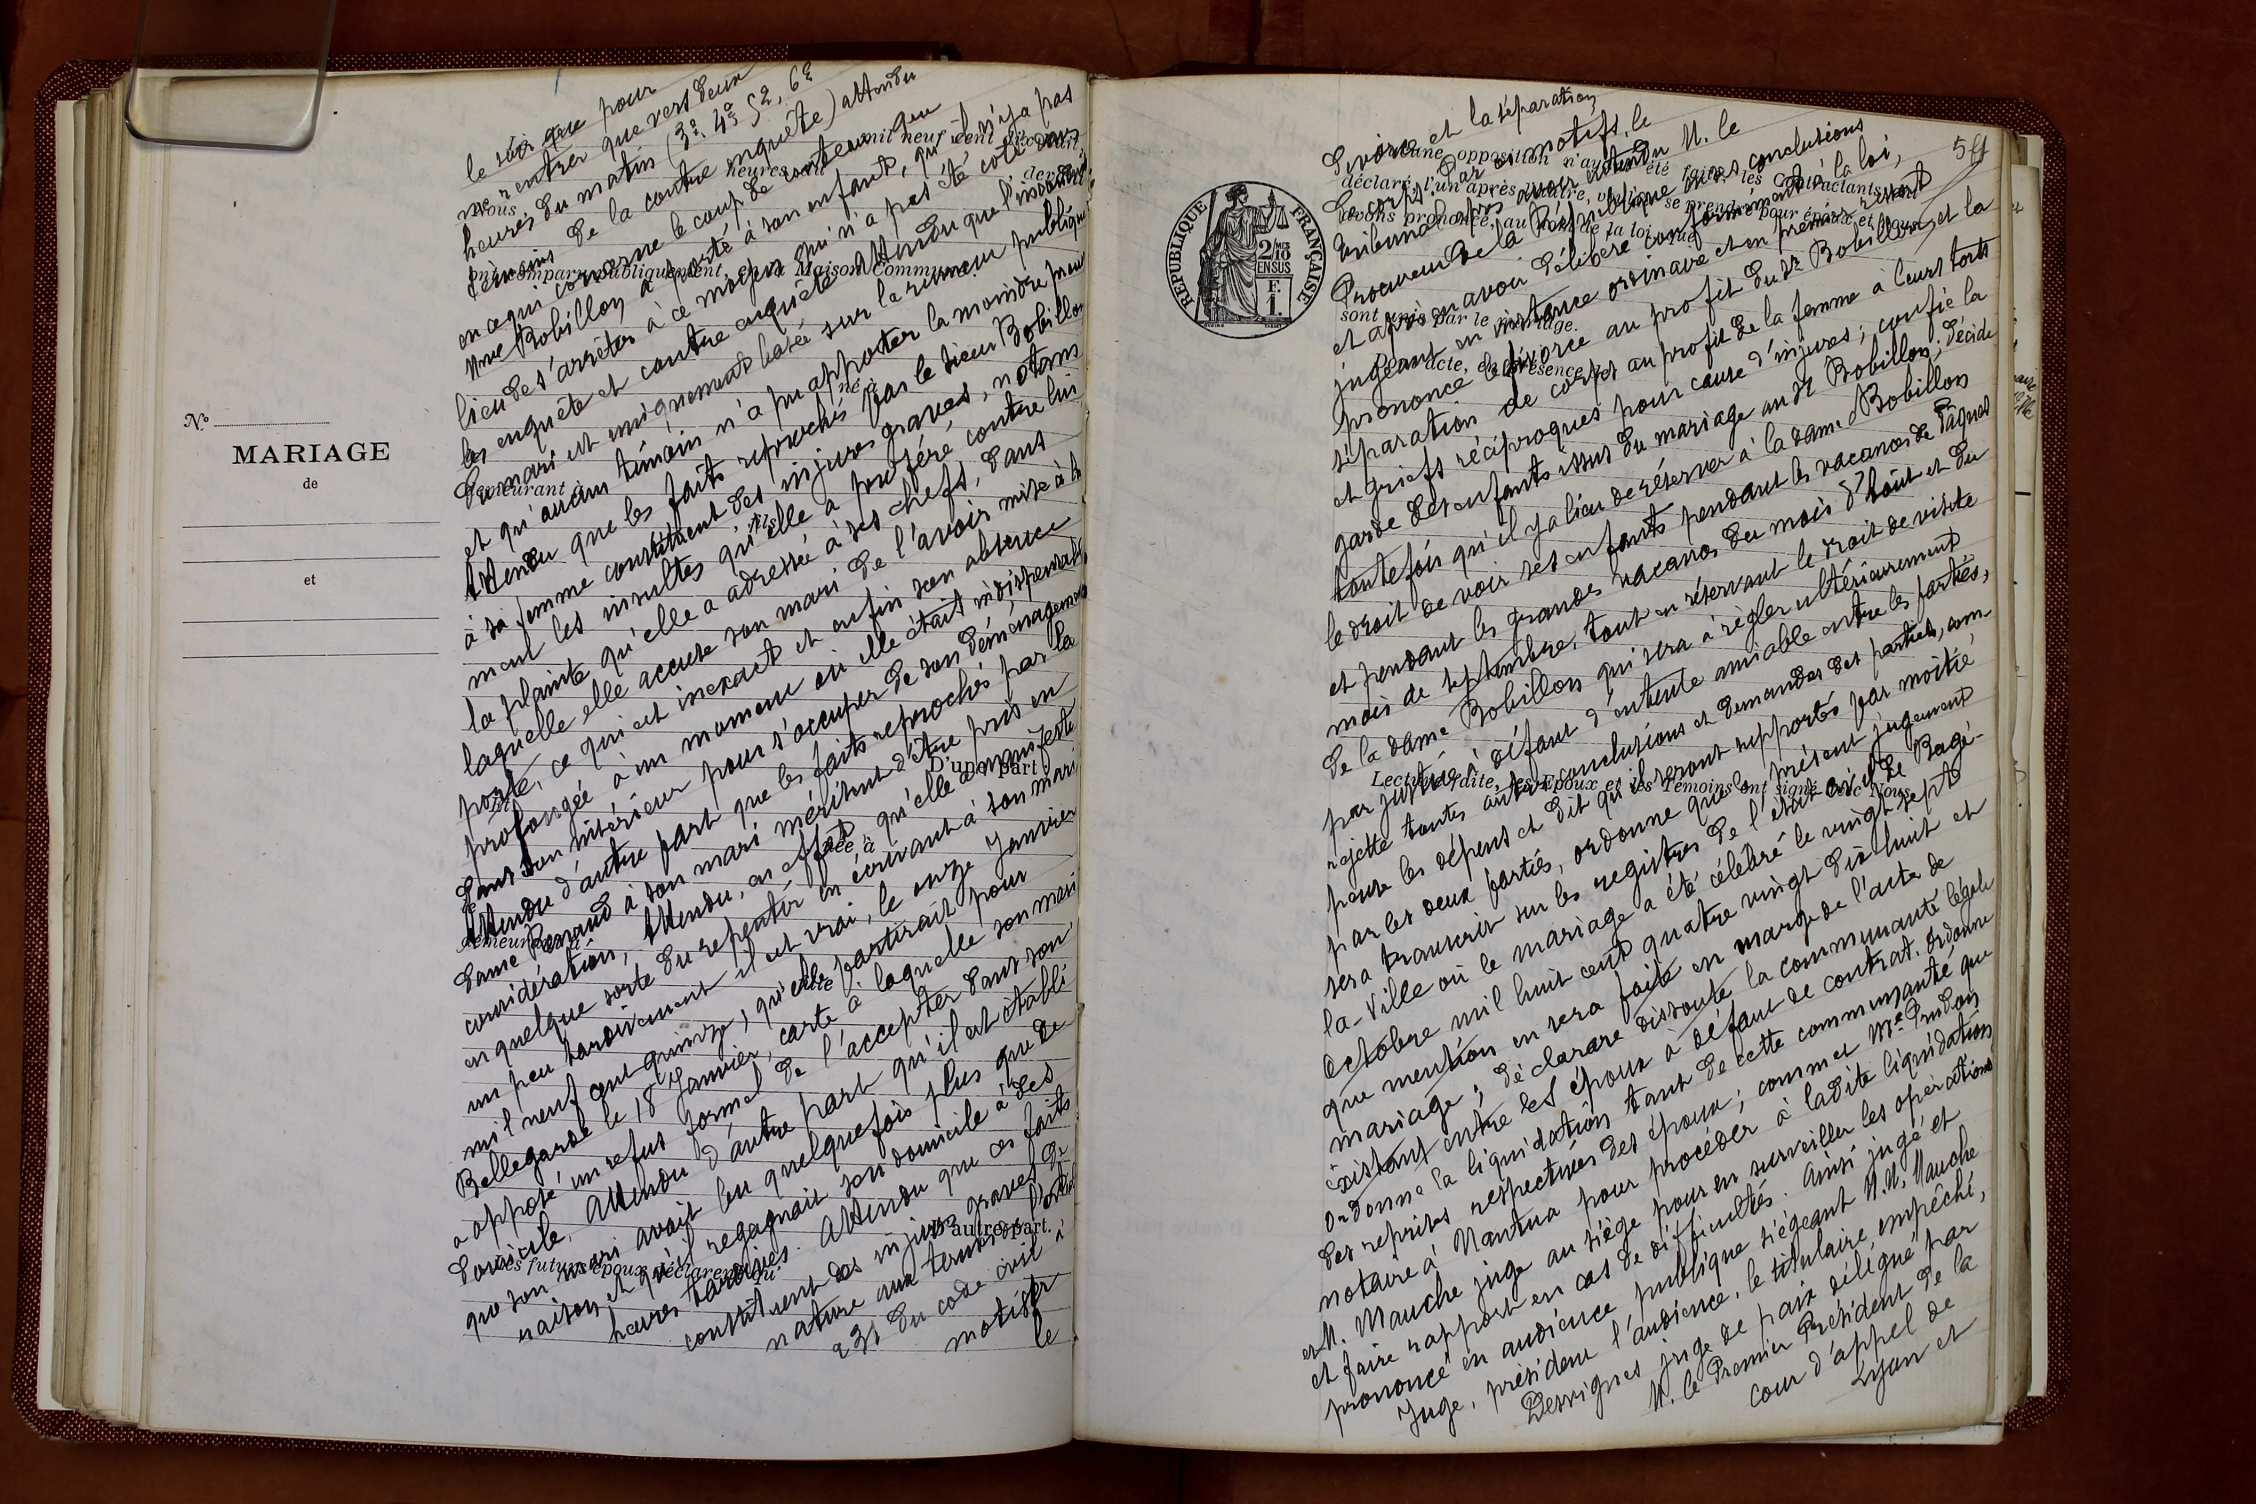 N.º
MARIAGE
de
et
le soir que pour
ne rentrer que vers deux
heures du matin (3e, 4e, 5e, 6e
témoins de la contre enquête) attendu
en ce qui concerne le coup de couteau que
Mme Bobillon a porté à son enfant, qu'il n'y a pas
lieu de s'arrêter à ce moyen qui n'a pas été coté dans
les enquête et contre enquête attendu que l'inconduite
du mari est uniquement basée sur la rumeur publique
et qu'aucun témoin n'a pu apporter la moindre preuve
Attendu que les faits reprochés par le sieur Bobillon
à sa femme constituent des injures graves, notam
ment les insultes qu'elle a proféré contre lui
la plainte qu'elle a adressée à ses chefs, dans
laquelle elle accuse son mari de l'avoir mise à la
porte, ce qui est inexact et enfin son absence
prolongée à un moment où elle était indispensable
dans son intérieur pour s'occuper de son déménagement
Attendu d'autre part que les faits reprochés par la
dame Renaud à son mari méritent d'être pris en
considération, Attendu, en effet qu'elle a manifesté
en quelque sorte du repentir en écrivant à son mari
un peu tardivement il est vrai, le onze Janvier
mil neuf cent quinze, qu'elle partirait pour
Bellegarde le 18 Janvier, carte à laquelle son mari
a opposé un refus formel de l'accepter dans son
domicile, Attendu d'autre part qu'il est établi
que son mari avait bu quelquefois plus que de
raison et qu'il regagnait son domicile à des
heures tardives. Attendu que ces faits
constituent des injures graves de
nature aux termes de l'article
231 du code civil à
motiver
le
Nous,
heures
mil neuf cent dix-huit,
devant
ont comparu publiquement, en la Maison Commune
né à
demeurant à
fils
D'une part
Et
née à
demeurant à
fille
D'autre part.
Les futurs époux déclarent qu'
59
RÉPUBLIQUE FRANÇAISE
2/10
EN SUS
F.
1.
divorce et la séparation
de corps. Par ces motifs, le
tribunal après avoir entendu M. le
Procureur de la République en ses conclusions
et après en avoir délibéré conformément à la loi,
jugeant en instance ordinaire et en premier ressort
prononce le divorce au profit du Sr Bobillon, et la
séparation de corps au profit de la femme à leurs torts
et griefs réciproques pour cause d'injures; confie la
garde des enfants issus du mariage au Sr Bobillon; décide
toutefois qu'il y a lieu de réserver à la dame Bobillon
le droit de voir ses enfants pendant les vacances de Pâques
et pendant les grandes vacances du mois d'Août et du
mois de septembre, tout en réservant le droit de visite
de la dame Bobillon qui sera à régler ultérieurement
par justice à défaut d'entente amiable entre les parties,
rejette toutes autres conclusions et demandes des parties, com-
pense les dépens et dit qu'ils seront supportés par moitié
par les deux parties, ordonne que le présent jugement
sera transcrit sur les registres de l'état civil de Bagé-
la-Ville où le mariage a été célébré le vingt sept
Octobre mil huit cent quatre vingt dix huit et
que mention en sera faite en marge de l'acte de
mariage; déclare dissoute la communauté légale
existant entre les époux à défaut de contrat. Ordonne
ordonne la liquidation tant de cette communauté que
des reprises respectives des époux; commet Me Prudon
notaire à Nantua pour procéder à ladite liquidation
et M. Mauche juge au siège pour en surveiller les opérations
et faire rapport en cas de difficultés. Ainsi jugé et
prononcé en audience publique siégeant M.M. Mauche
Juge, président l'audience, le titulaire empêché,
Desvignes juge de paix délégué par
M. le Premier Président de la
cour d'appel de
Lyon et
Aucune opposition n'ayant été faite, les Contractants ont
déclaré l'un après l'autre, vouloir se prendre pour époux et Nous
avons prononcé, au nom de la loi, que
sont unis par le mariage.
Dont acte, en présence de
Lecture dite, les Époux et les Témoins ont signé avec Nous